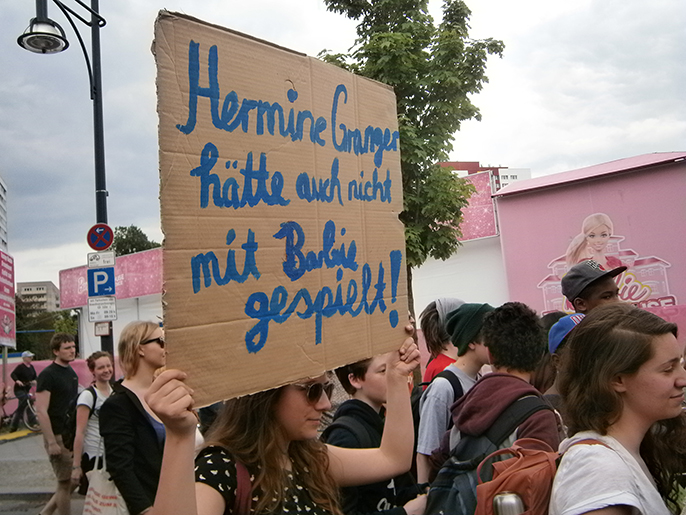 Hermine Granger
hätte auch nicht
mit Barbie
gespielt!
P